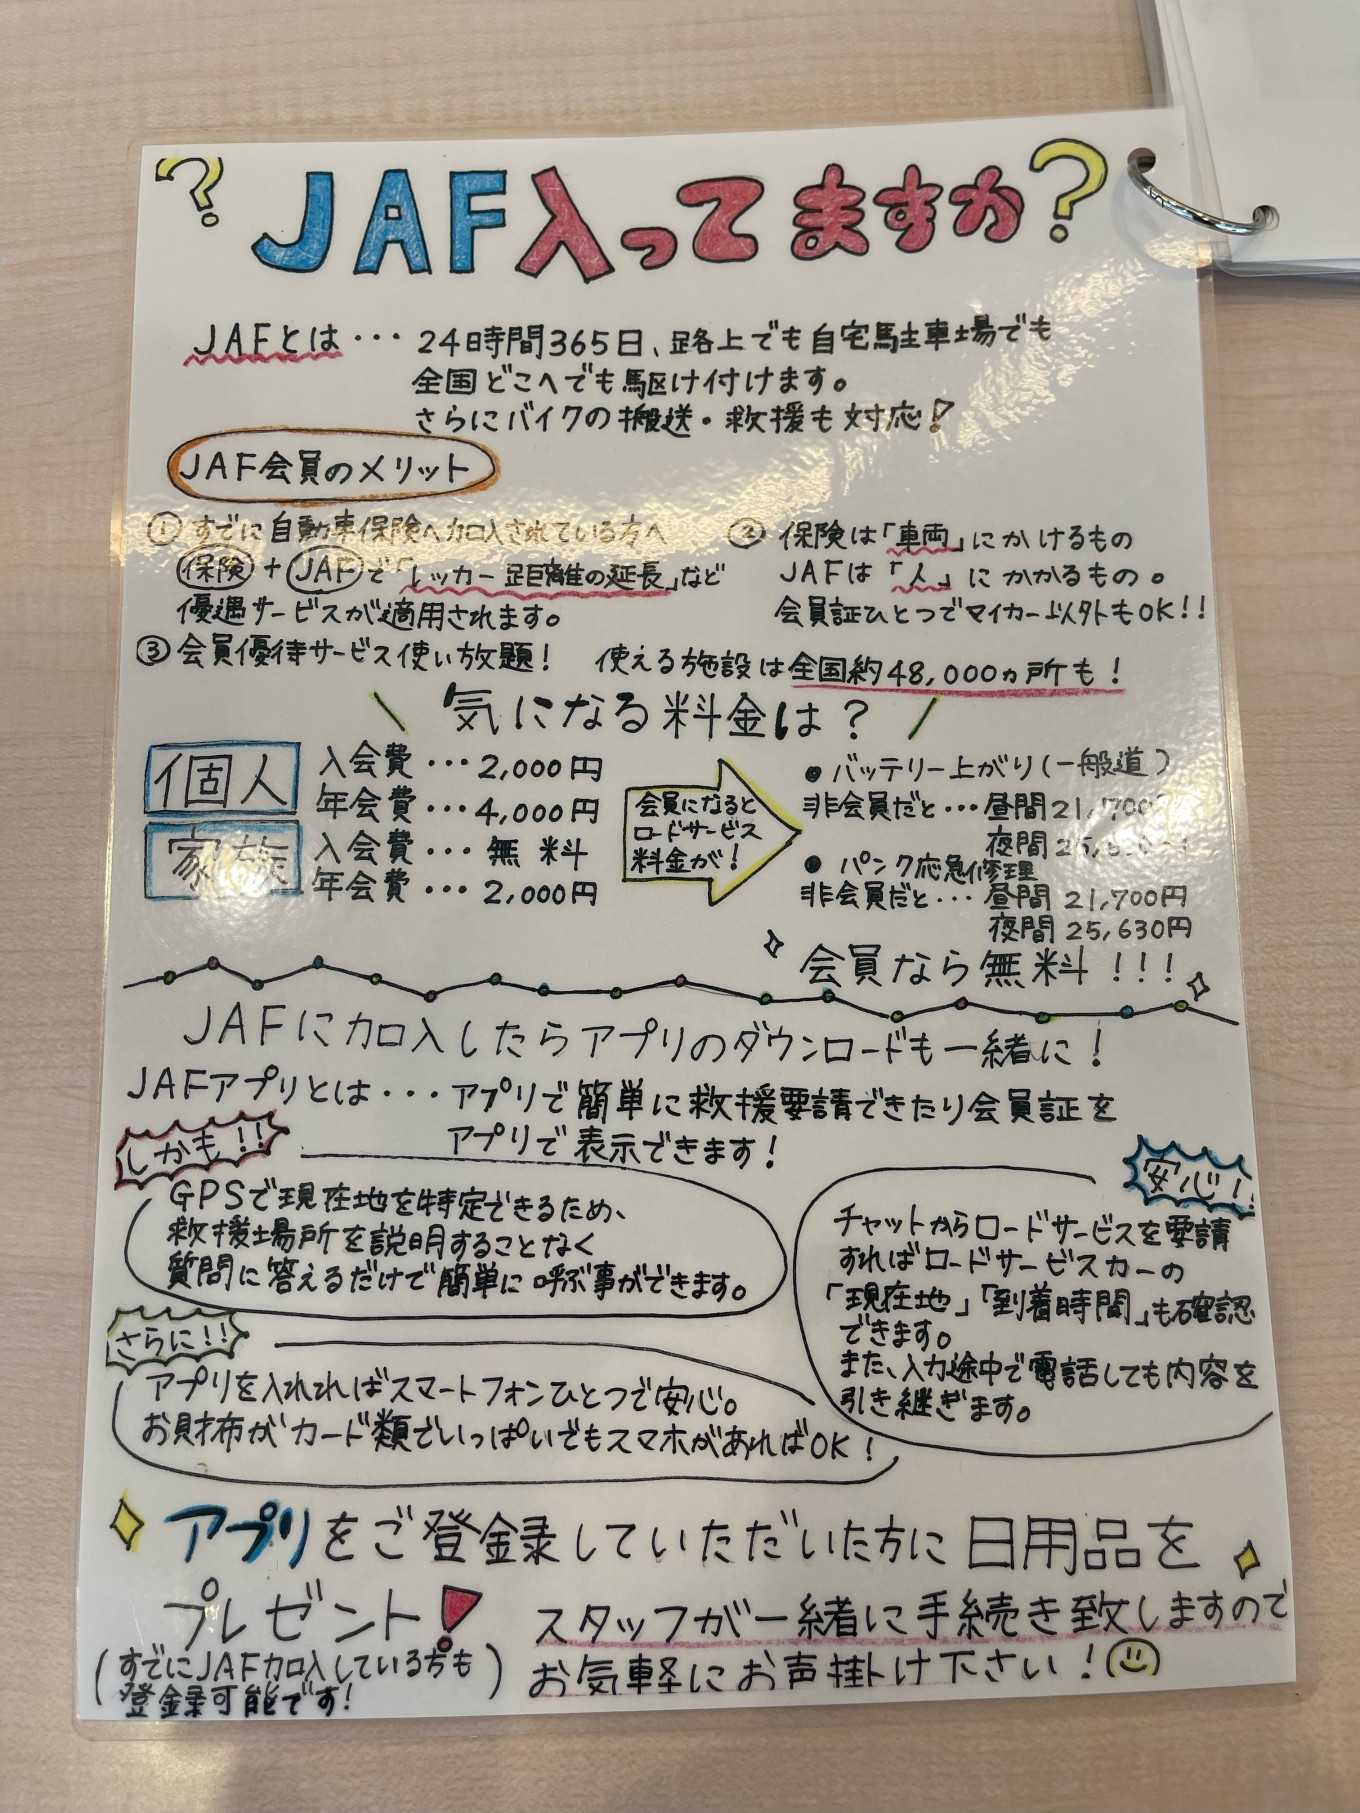 ? JAF入ってますか?
JAFとは・・・24時間365日、路上でも自宅駐車場でも
全国どこへでも駆け付けます。
さらにバイクの搬送・救援も対応!
JAF会員のメリット
① すでに自動車保険へ加入されている方へ
保険+JAFで「レッカー距離の延長」など
優遇サービスが適用されます。
② 保険は「車両」にかけるもの
JAFは「人」にかかるもの。
会員証ひとつでマイカー以外もOK!!
③ 会員優待サービス使い放題! 使える施設は全国約48,000ヵ所も!
気になる料金は?
個人
入会費・・・2,000円
年会費・・・4,000円
家族
入会費・・・無料
年会費・・・2,000円
会員になると
ロードサービス
料金が!
●バッテリー上がり(一般道)
非会員だと・・・昼間21,700
夜間
●パンク応急修理
非会員だと・・・昼間21,700円
夜間25,630円
会員なら無料!!!
JAFに加入したらアプリのダウンロードも一緒に!
JAFアプリとは・・・アプリで簡単に救援要請できたり会員証を
アプリで表示できます!
しかも!!
GPSで現在地を特定できるため、
救援場所を説明することなく
質問に答えるだけで簡単に呼ぶ事ができます。
安心!!
チャットからロードサービスを要請
すればロードサービスカーの
「現在地」「到着時間」も確認
できます。
また、入力途中で電話しても内容を
引き継ぎます。
さらに!!
アプリを入れればスマートフォンひとつで安心。
お財布がカード類でいっぱいでもスマホがあればOK!
アプリをご登録していただいた方に日用品を
プレゼント!
(すでにJAF加入している方も
登録可能です!)
スタッフが一緒に手続き致しますので
お気軽にお声掛け下さい!